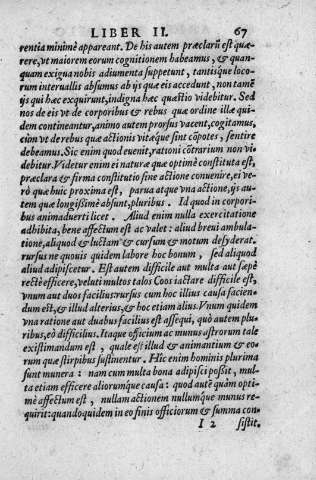 LIBER II. 67
rentia minimè appareant. De his autem præclarũ est quæ-
rere, vt maiorem eorum cognitionem habeamus, & quan-
quam exigua nobis adiumenta suppetunt, tantisque loco-
rum interuallis absumus ab ijs quæ eis accedunt, non tamẽ
ijs qui hæc exquirunt, indigna hæc quæstio videbitur. Sed
nos de eis vt de corporibus & rebus quæ ordine illæ qui-
dem contineantur, animo autem prorsus vacent, cogitamus,
cùm vt de rebus quæ actionis vitæque sint cõpotes, sentire
debeamus. Sic enim quod euenit, rationi cõtrarium non vi-
debitur. Videtur enim ei naturæ quæ optimè constituta est,
præclara & firma constitutio sine actione conuenire, ei ve-
rò quæ huic proxima est, parua atque vna actione, ijs au-
tem quæ longissimè absunt, pluribus. Id quod in corpori-
bus animaduerti licet. Aliud enim nulla exercitatione
adhibita, bene affectum est ac valet: aliud breui ambula-
tione, aliquod & luctam & cursum & motum desyderat.
rursus ne quouis quidem labore hoc bonum, sed aliquod
aliud adipiscetur. Est autem difficile aut multa aut sæpè
rectè efficere, veluti multos talos Coos iactare difficile est,
vnum aut duos facilius: rursus cum hoc illius causa facien-
dum est, & illud alterius, & hoc etiam alius. Vnum quidem
vna ratione aut duabus facilius est assequi, quò autem plu-
ribus, eò difficilius. Itaque officium ac munus astrorum tale
existimandum est, quale est illud & animantium & eo-
rum quæ stirpibus sustinentur. Hîc enim hominis plurima
sunt munera: nam cum multa bona adipisci possit, mul-
ta etiam efficere aliorumque causa: quod autẽ quàm opti-
mè affectum est, nullam actionem nullumque munus re-
quirit: quandoquidem in eo finis officiorum & summa con-
I 2 sistit.